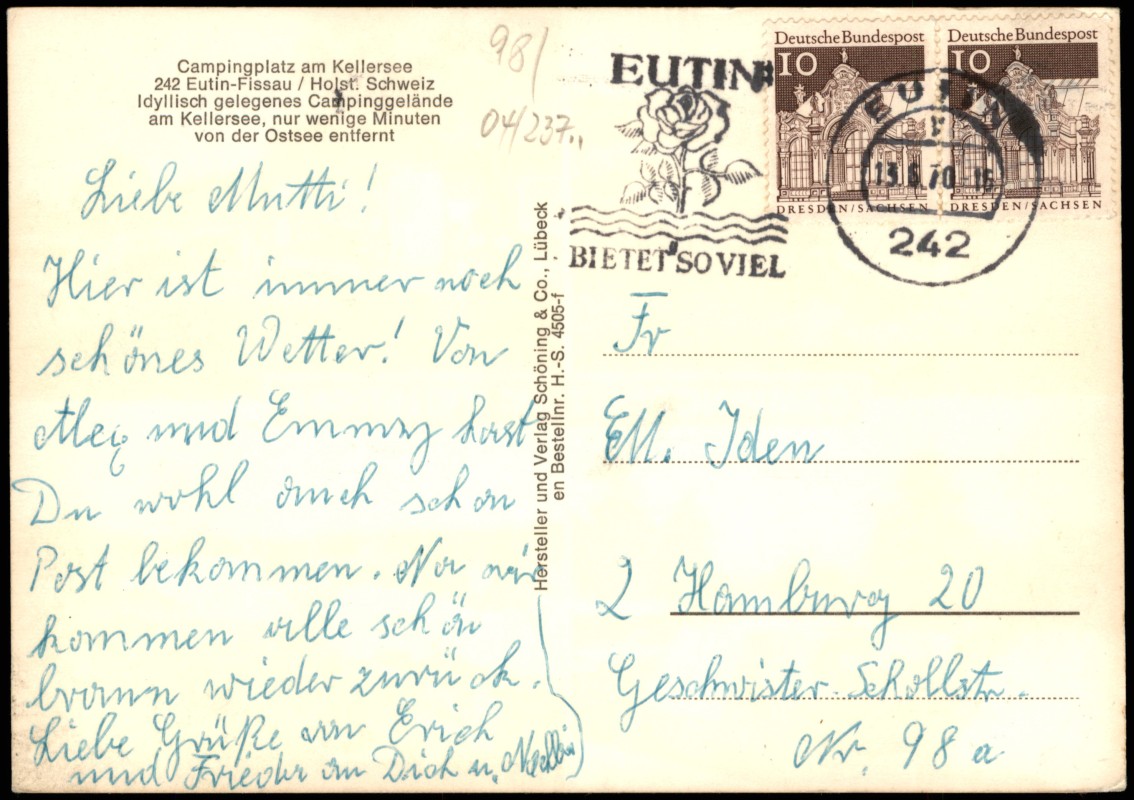 Campingplatz am Kellersee
242 Eutin-Fissau / Holst. Schweiz
Idyllisch gelegenes Campinggelände
am Kellersee, nur wenige Minuten
von der Ostsee entfernt
98/
04/237..
EUTIN
BIETET SO VIEL
Deutsche Bundespost
10
DRESDEN/SACHSEN
Deutsche Bundespost
10
DRESDEN/SACHSEN
EUTIN
13.6.70
242
Liebe Mutti!
Hier ist immer noch
schönes Wetter! Von
und Emmy hast
Du wohl auch schon
Post bekommen. Na wir
kommen alle schön
braun wieder zurück.
Liebe Grüße von Erich
und Frieda an Dich u.
Hersteller und Verlag Schöning & Co., Lübeck
en Bestellnr. H.-S. 4505-f
Fr
Ell. Iden
2 Hamburg 20
Geschwister-Schollstr.
Nr. 98 a